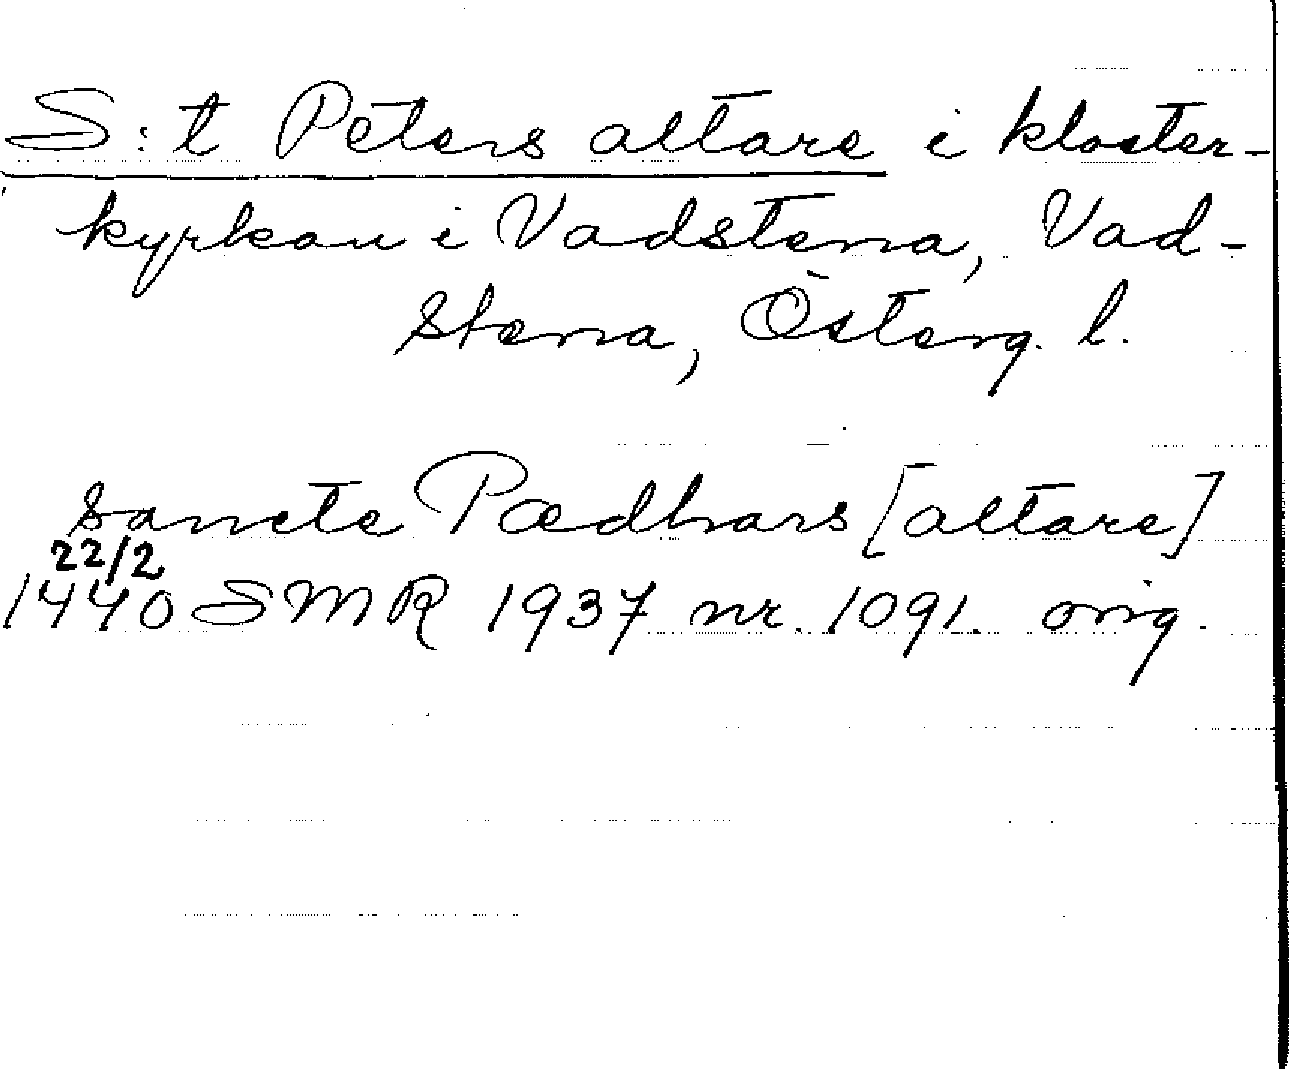 S:t Peters altare i kloster-
kyrkan i Vadstena, Vad-
stena, Österg. l.
sancte Pædhars [altare]
22/2
1440 SMR 1937 nr. 1091. orig.